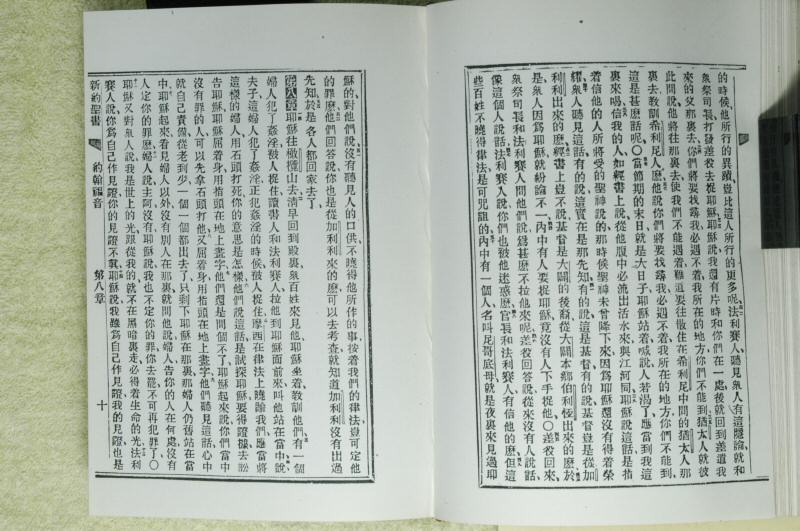 的時候、他所行的異蹟、豈比這人所行的更多呢、法利賽人聽見衆人有這隱論、就和
衆祭司長、打發差役去捉耶穌、耶穌說、我還有片時和你們在一處、後就回到差遣我
來的父那裏去、你們將要找尋我、必遇不着、我所在的地方、你們不能到、猶太人就彼
此問說、他將往那裏去、使我們不能遇着、難道要往散住在希利尼中間的猶太人那
裏去、教訓希利尼人麽、他說、你們將要找尋我、必遇不着、我所在的地方、你們不能到、
這是甚麽話呢、〇當節期的末日、就是大日子、耶穌站着喊說、人若渴了、應當到我這
裏來喝、信我的人、如經書上說、從他腹中必流出活水來、與江河同、耶穌說這話、是指
着信他的人所將受的聖神說的、那時候聖神未曾降下來、因爲耶穌還沒有得着榮
耀、衆人聽見這話、有的說、這實在是那先知、有的說、這是基督、有的說、基督豈是從加
利利出來的麽、經書上豈不說、基督是大闢的後裔、從大闢本鄉伯利恒出來的麽、於
是衆人因爲耶穌就紛論不一、內中有人要捉耶穌、竟沒有人下手捉他、〇差役回來、
衆祭司長和法利賽人問他們說、爲甚麽不拉他來呢、差役回答說、從來沒有人說話
像這個人說話、法利賽人說、你們也被他迷惑麽、官長和法利賽人、有信他的麽、但這
些百姓不曉得律法、是可咒詛的、內中有一個人、名叫尼哥底母、就是夜裏來見過耶
穌的、對他們說、沒有聽見人的口供、不曉得他所作的事、按着我們的律法、豈可定他
的罪麽、他們回答說、你也是從加利利來的麽、可以去考查、就知道加利利沒有出過
先知、於是各人都回家去了、
第八章耶穌往橄欖山去、清早回到殿裏、衆百姓來見他、耶穌坐着教訓他們、有一個
婦人犯了姦淫、被人捉住、讀書人和法利賽人、拉他到耶穌面前來、叫他站在當中、說、
夫子、這婦人犯了姦淫、正犯姦淫的時候、被人捉住、摩西在律法上曉諭我們、應當將
這樣的婦人用石頭打死、你的意思是怎樣、他們說這話、是試探耶穌、要得證據去訟
告耶穌、耶穌屈着身、用指頭在地上畫字、他們還是問個不了、耶穌起來、說、你們當中
沒有罪的人、可以先拿石頭打他、又屈着身、用指頭在地上畫字、他們聽見這話、心中
就自己責備、從老到少、一個一個都出去了、只剩下耶穌在那裏、那婦人仍舊站在當
中、耶穌起來、看見婦人以外、沒有別人在那裏、就問他說、婦人、告你的人在何處、沒有
人定你的罪麽、婦人說、主阿、沒有、耶穌說、我也不定你的罪、你去罷、不可再犯罪了、〇
耶穌又對衆人說、我是世上的光、跟從我的、就不在黑暗裏走、必得着生命的光、法利
賽人說、你爲自己作見證、你的見證不眞、耶穌說、我雖爲自己作見證、我的見證也是
新約聖書 約翰福音 第八章 十